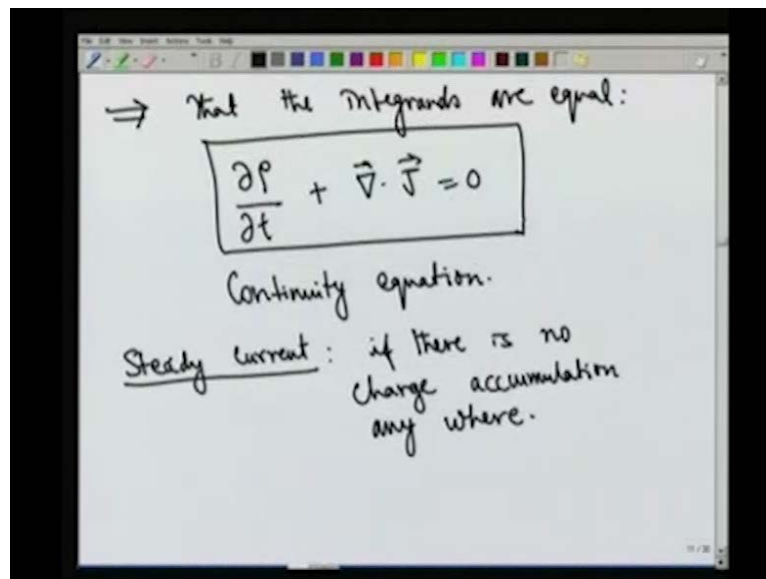 File Edit View Insert Actions Tools Help
⇒ that the integrands are equal:
∂ρ/∂t + ∇⃗·J⃗ = 0
Continuity equation.
Steady current: if there is no
charge accumulation
any where.